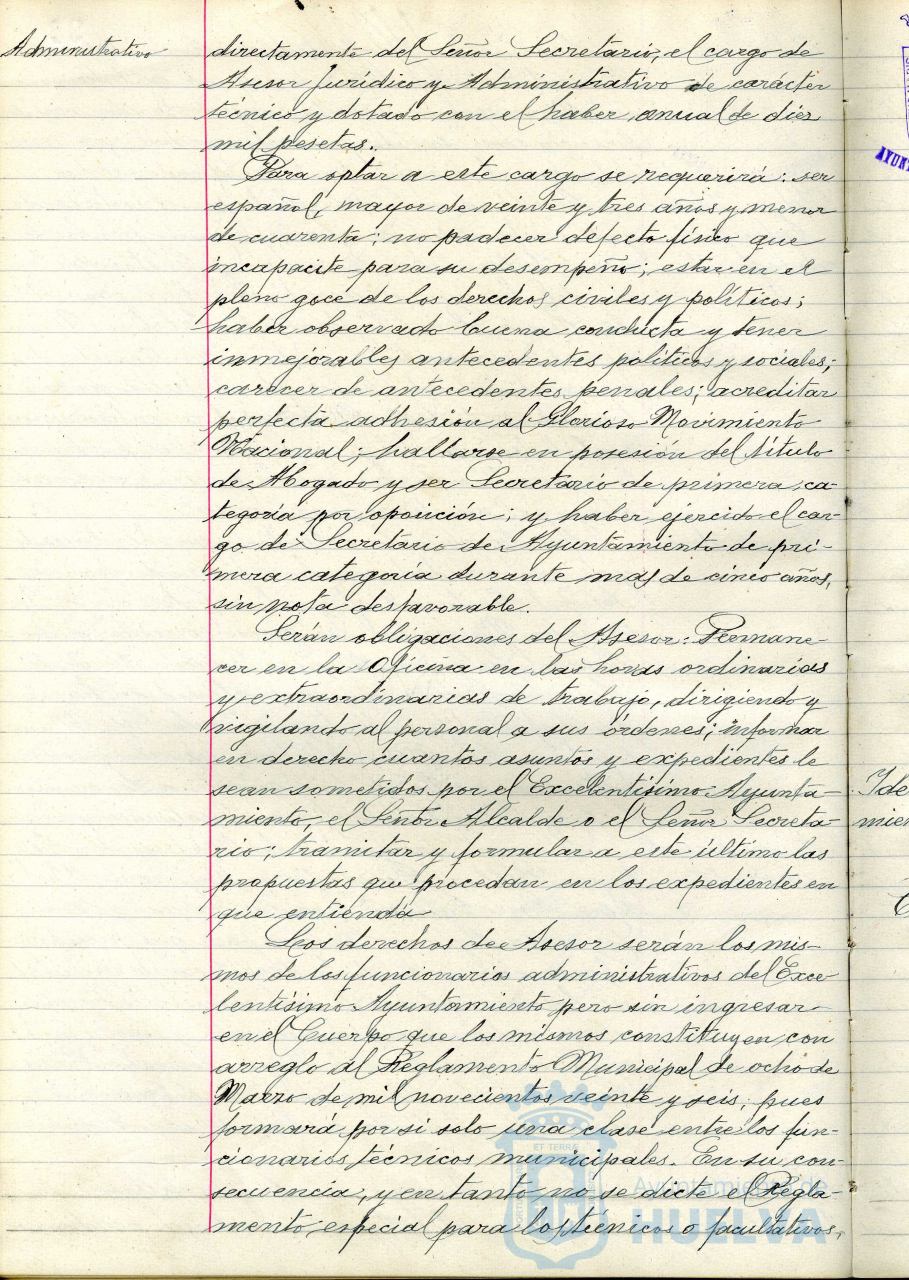 Administrativo
directamente del Señor Secretario, el cargo de
Asesor Jurídico y Administrativo de carácter
técnico y dotado con el haber anual de diez
mil pesetas.
Para optar a este cargo se requerirá: ser
español, mayor de veinte y tres años y menor
de cuarenta; no padecer defecto físico que
incapacite para su desempeño; estar en el
pleno goce de los derechos civiles y políticos;
haber observado buena conducta y tener
inmejorables antecedentes políticos y sociales;
carecer de antecedentes penales; acreditar
perfecta adhesión al Glorioso Movimiento
Nacional; hallarse en posesión del título
de Abogado y ser Secretario de primera ca-
tegoría por oposición; y haber ejercido el car-
go de Secretario de Ayuntamiento de pri-
mera categoría durante mas de cinco años,
sin nota desfavorable.
Serán obligaciones del Asesor: Permane-
cer en la Oficina en las horas ordinarias
y extraordinarias de trabajo, dirigiendo y
vigilando al personal a sus órdenes; informar
en derecho cuantos asuntos y expedientes le
sean sometidos por el Excelentísimo Ayunta-
miento, el Señor Alcalde o el Señor Secreta-
rio; tramitar y formular a este último las
propuestas que procedan en los expedientes en
que entienda
Los derechos de Asesor serán los mis-
mos de los funcionarios administrativos del Exce
lentísimo Ayuntamiento pero sin ingresar
en el Cuerpo que los mismos constituyen con
arreglo al Reglamento Municipal de ocho de
Marzo de mil novecientos veinte y seis, pues
formará por si solo una clase entre los fun-
cionarios técnicos municipales. En su con-
secuencia, y en tanto no se dicte el Regla-
mento especial para los técnicos o facultativos,
Ayuntamiento de
HUELVA
AYUN
Ide
mien